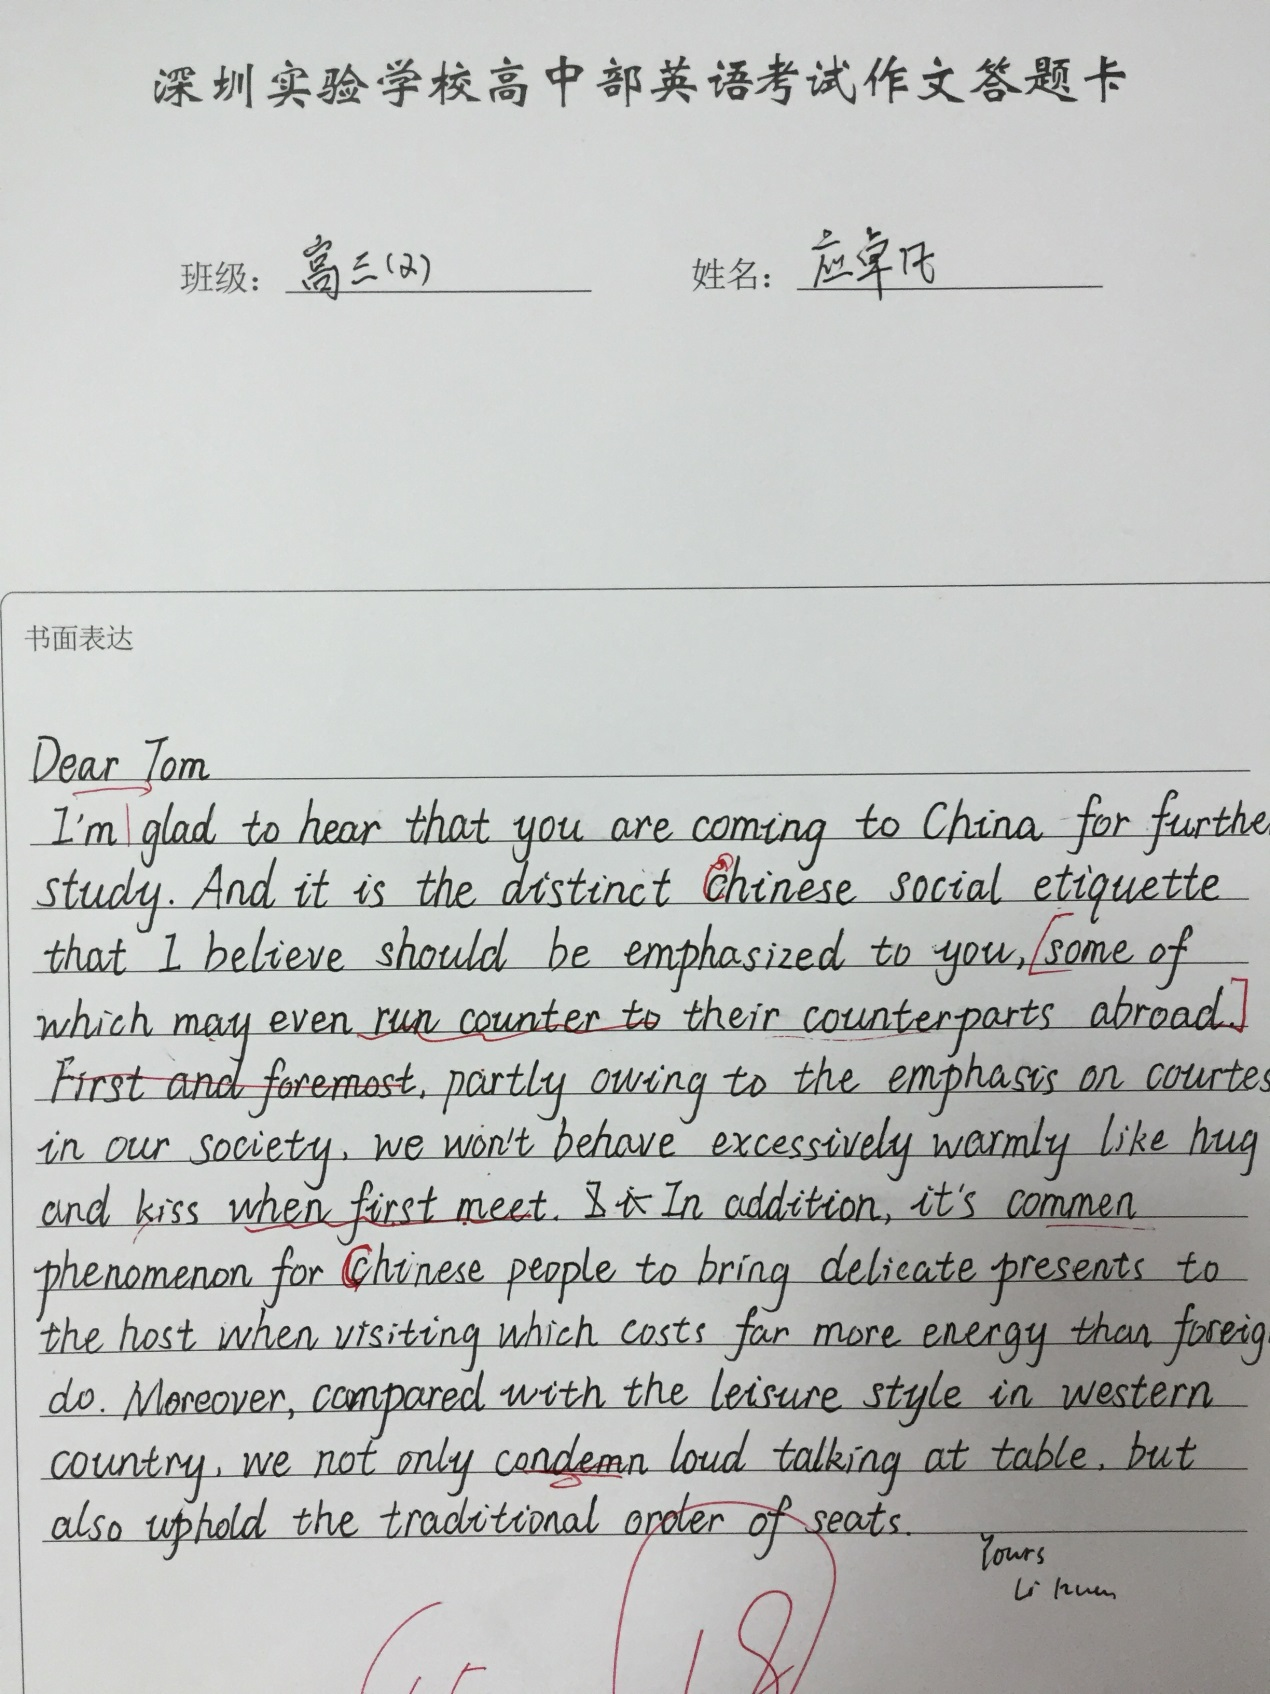 深圳实验学校高中部英语考试作文答题卡
班级：高三(2) 姓名：应卓凡
书面表达
Dear Tom
I'm glad to hear that you are coming to China for furthe
study. And it is the distinct Chinese social etiquette
that I believe should be emphasized to you, [some of
which may even run counter to their counterparts abroad.]
First and foremost, partly owing to the emphasis on courtes
in our society, we won't behave excessively warmly like hug
and kiss when first meet. In addition, it's commen
phenomenon for Chinese people to bring delicate presents to
the host when visiting which costs far more energy than foreig
do. Moreover, compared with the leisure style in western
country, we not only condemn loud talking at table, but
also uphold the traditional order of seats.
Yours
Li Huan
18